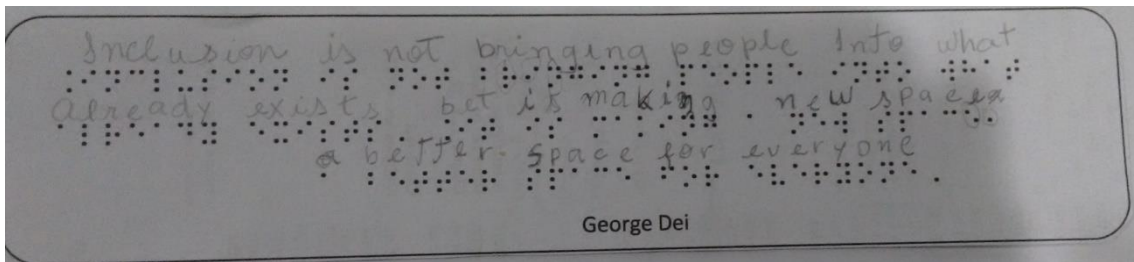 Inclusion is not bringing people Into what
already exists bet it is making . new space
a better space for everyone
George Dei